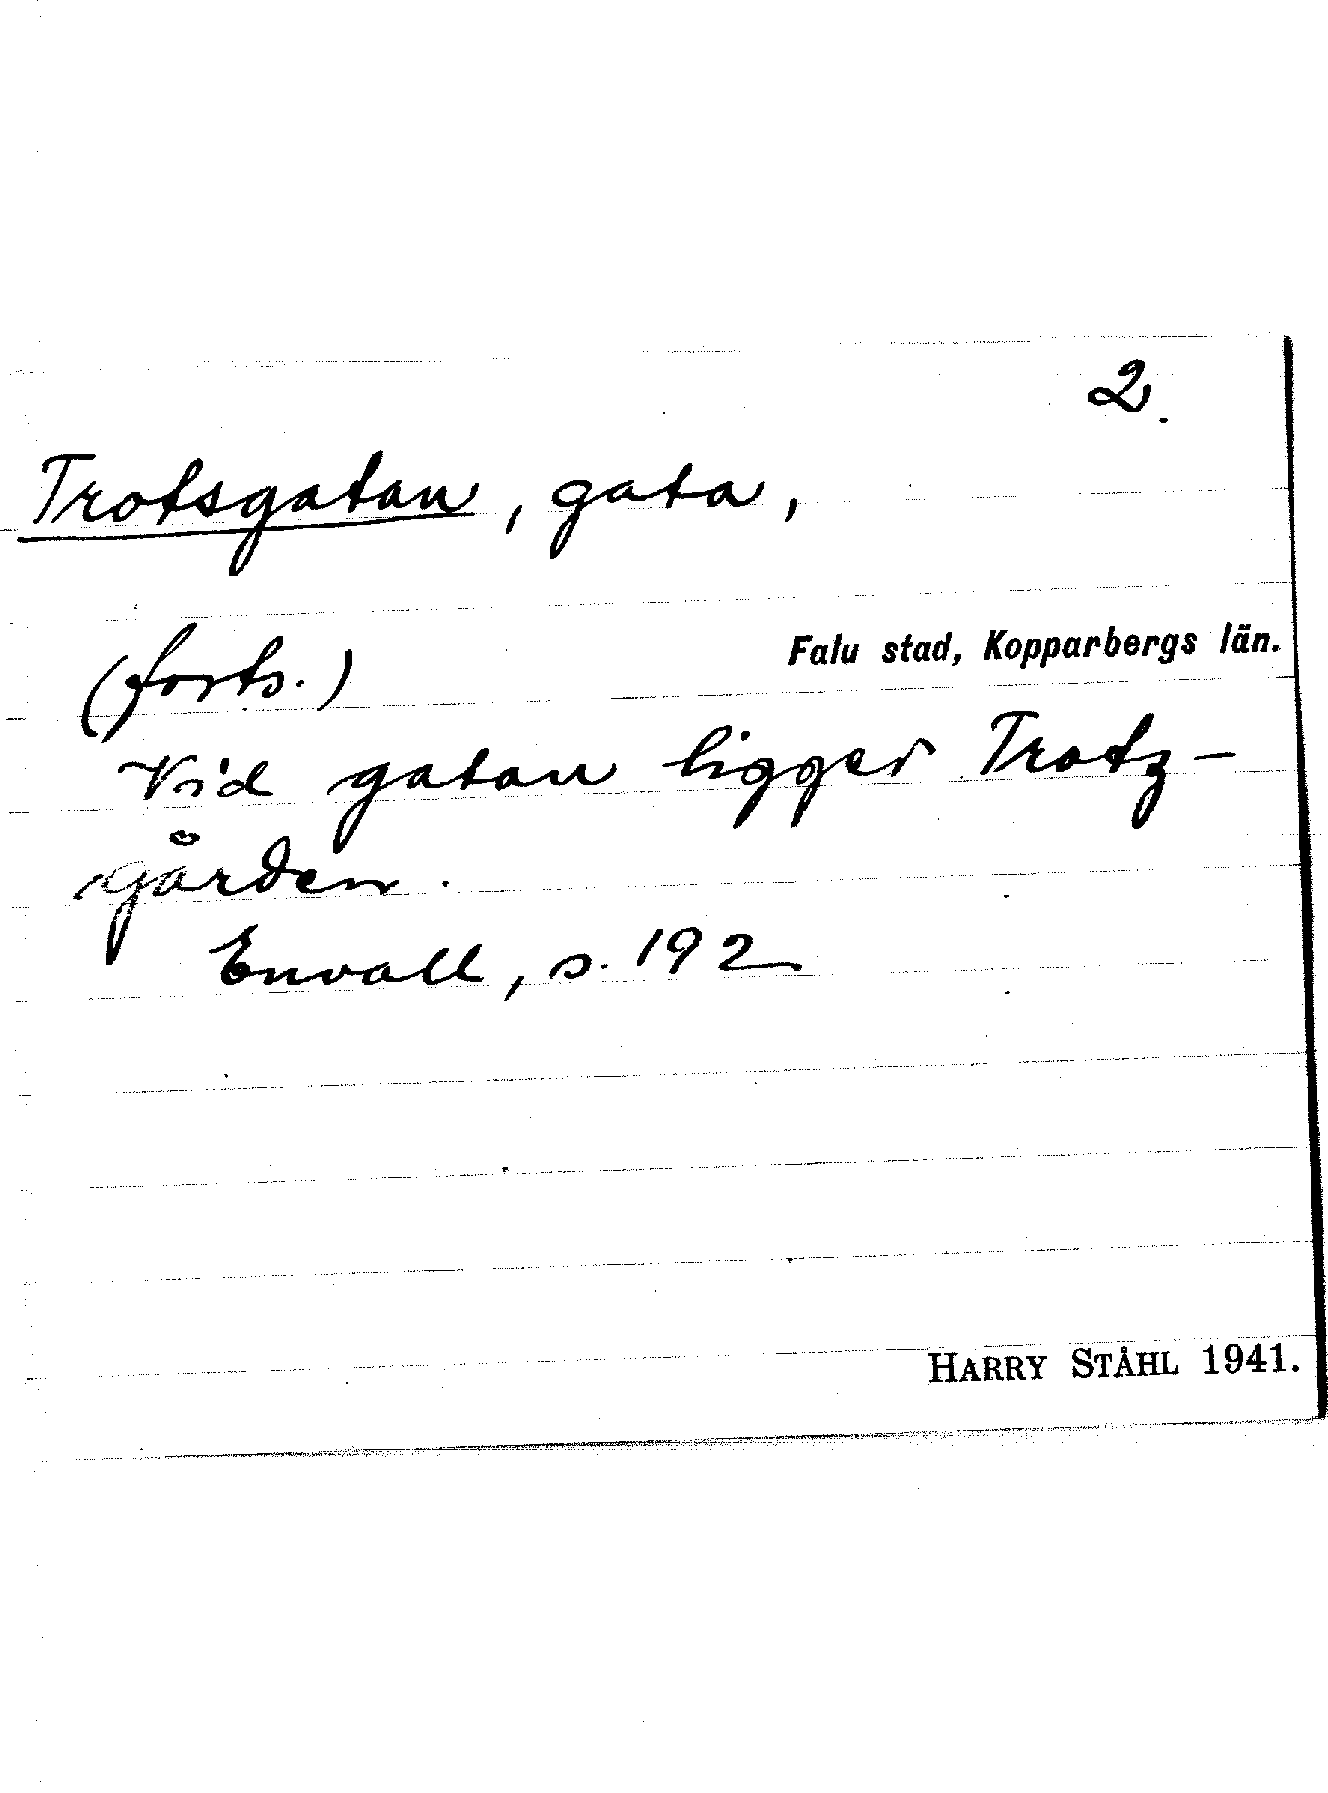 2.
Trotsgatan, gata,
Falu stad, Kopparbergs län.
(forts.)
Vid gatan ligger Trotz-
gården.
Envall, s. 192
HARRY STÅHL 1941.